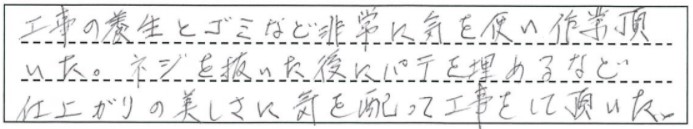 工事の養生とゴミなど非常に気を使い作業頂
いた。ネジを抜いた後にパテを埋めるなど
仕上がりの美しさに気を配って工事をして頂いた。